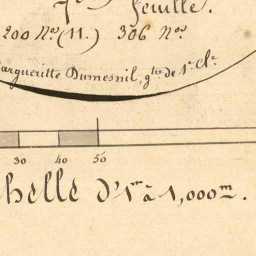 feuille.
200 Nos (11.) 306 Nos
Margueritte Dumesnil, gtre de 1re Cle
30 40 50
helle d'1m à 1,000m.